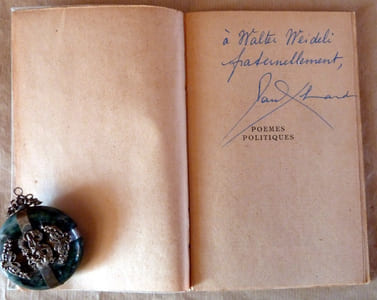 à Walter Weideli
fraternellement,
Paul Eluard
POEMES
POLITIQUES